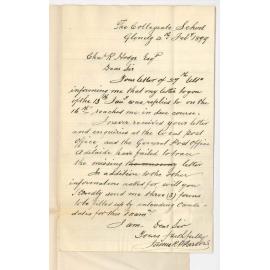 The Collegiate School
Glenelg 2nd Feby 1899
Chas R. Hodge Esqr
Dear Sir
Your letter of 27th ult
informing me that my letter to you
of the 13th Jany was replied to on the
16th, reached me in due course.
I never received your letter
and enquiries at the Local post
Office and the General Post Office
Adelaide have failed to trace
the missing letter
In addition to the other
information asked for will you
kindly send me three (3) forms
to be filled up by intending Candi-
dates for this Exam
I am Dear Sir
Yours faithfully